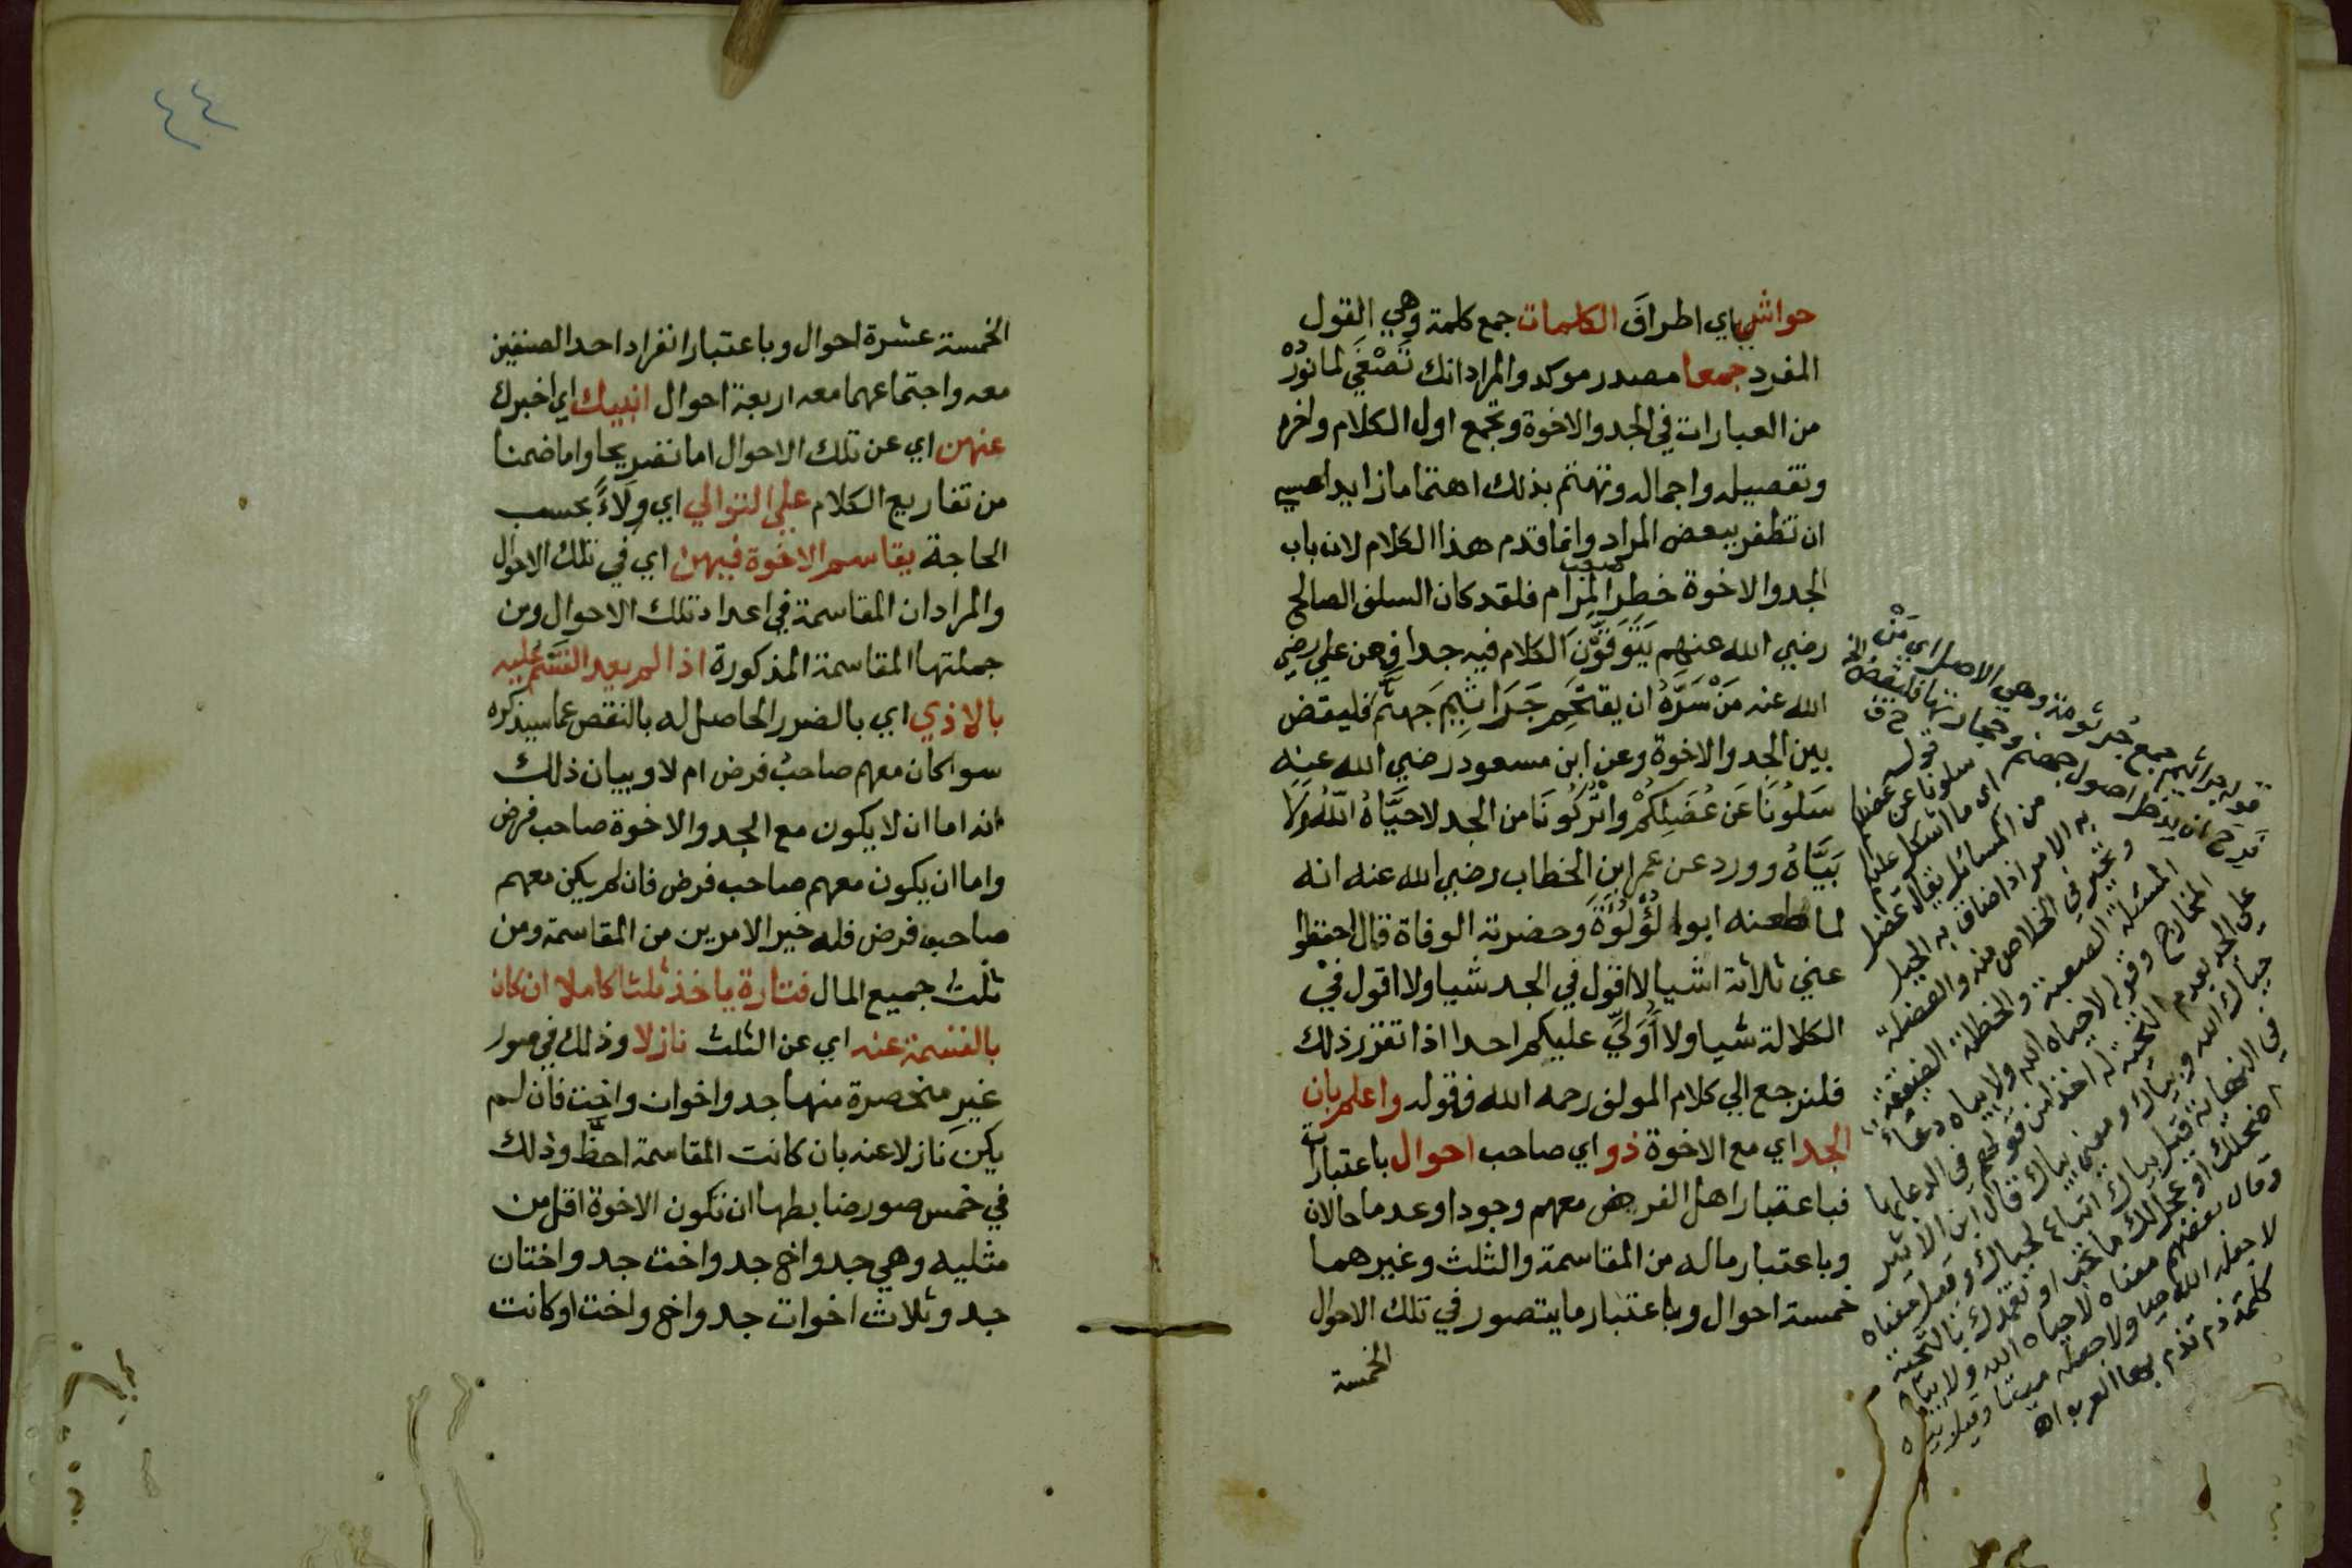 حواشي اي اطراف الكلمات جمع كلمة وهي القول
المفرد جمعا مصدر موكد والمراد انك تصغي لما نورده
من العبارات في الجد والاخوة وتجمع اول الكلام واخره
وتفصيله واجماله وتهتم بذلك اهتماما زايدا عسي
ان تظفر ببعض المراد وانما قدم هذا الكلام لان باب
الجد والاخوة خطر المرام فلقد كان السلف الصالح
رضي الله عنهم يتوقون الكلام فيه جدا فعن علي رضي
الله عنه من سره ان يقتحم جراثيم جهنم فليقض
بين الجد والاخوة وعن ابن مسعود رضي الله عنه
سلونا عن عضلكم واتركونا من الجد لا حياه الله ولا
بياه وورد عن عمر ابن الخطاب رضي الله عنه انه
لما طعنه ابو لؤلؤة وحضرته الوفاة قال احفظوا
عني ثلاثة اشيا لا اقول في الجد شيا ولا اقول في
الكلالة شيا ولا اولي عليكم احدا اذا تقرر ذلك
فلنرجع الي كلام المولف رحمه الله فقوله واعلم بان
الجد اي مع الاخوة ذو اي صاحب احوال باعتبارات
فباعتبار اهل الفرض معهم وجودا وعدما حالان
وباعتبار ماله من المقاسمة والثلث وغيرهما
خمسة احوال وباعتبار ما يتصور في تلك الاحوال
الخمسة
قوله جراثيم جمع جرثومة وهي الاصل اي من
اصول جهنم فليقض الخ
قوله سلونا عن عضلكم
اي ما اشكل عليكم
من المسائل يقال عضل
به الامر اذا ضاق به الحيل
المخارج وقوله لا حياه الله ولا بياه دعاء
على الجد بعدم التحية
حياك الله وبياك ومعنى بياك قال ابن الاثير
في النهاية قيل بياك اتباع لحياك وقيل معناه
اضحكك او عجل لك ما تحب او تعمدك بالتحية
وقال بعضهم معناه لا حياه الله ولا بياه
لا جعله الله حيا ولا جعله ميتا وقيل
كلمة ذم تذم بها العرب اه
٤٤
الخمسة عشرة احوال وباعتبار انفراد احد الصنفين
معه واجتماعهما معه اربعة احوال انبيك اي اخبرك
عنهن اي عن تلك الاحوال اما تصريحا واما ضمنا
من تفاريع الكلام علي التوالي اي ولاء بحسب
الحاجة يقاسم الاخوة فيهن اي في تلك الاحوال
والمراد ان المقاسمة في اعداد تلك الاحوال ومن
جملتها المقاسمة المذكورة اذا لم يعد القسم عليه
بالاذي اي بالضرر الحاصل له بالنقص عما سيذكره
سوا كان معهم صاحب فرض ام لا وبيان ذلك
انه اما ان لا يكون مع الجد والاخوة صاحب فرض
واما ان يكون معهم صاحب فرض فان لم يكن معهم
صاحب فرض فله خير الامرين من المقاسمة ومن
ثلث جميع المال فتارة ياخذ ثلثا كاملا ان كان
بالقسمة عنه اي عن الثلث نازلا وذلك في صور
غير منحصرة منها جد واخوان واخت فان لم
يكن نازلا عنه بان كانت المقاسمة احظ وذلك
في خمس صور ضابطها ان تكون الاخوة اقل من
مثليه وهي جد واخ جد واخت جد واختان
جد وثلاث اخوات جد واخ واخت او كانت